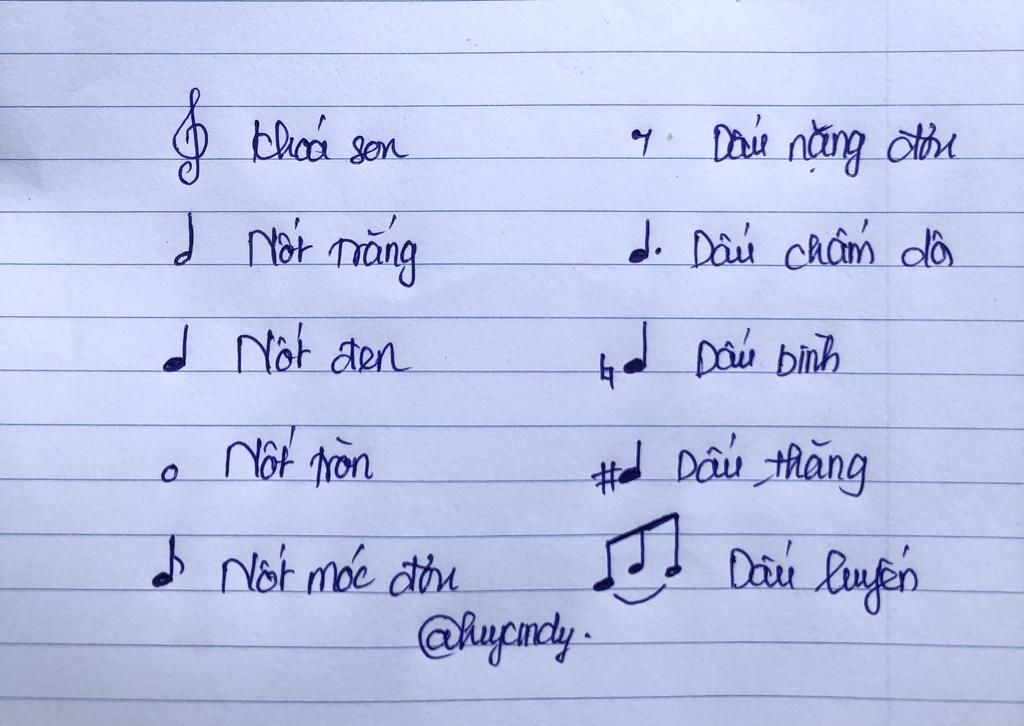 khoá son Dấu nặng đơn
Nốt trắng Dấu chấm dôi
Nốt đen Dấu bình
Nốt tròn Dấu thăng
Nốt móc đơn Dấu luyến
@huycmdy.